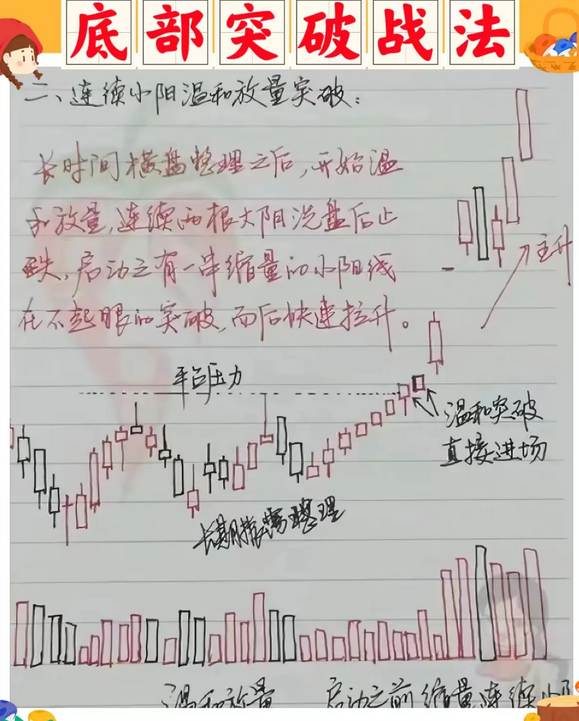 底部突破战法
二、连续小阳温和放量突破：
长时间横盘整理之后，开始温
和放量，连续两根大阳洗盘后止
跌，启动之有一串缩量的小阳线
在不起眼的突破，而后快速拉升。
主升
平台压力
温和突破
直接进场
长期横盘整理
温和放量
启动之前缩量连续小阳